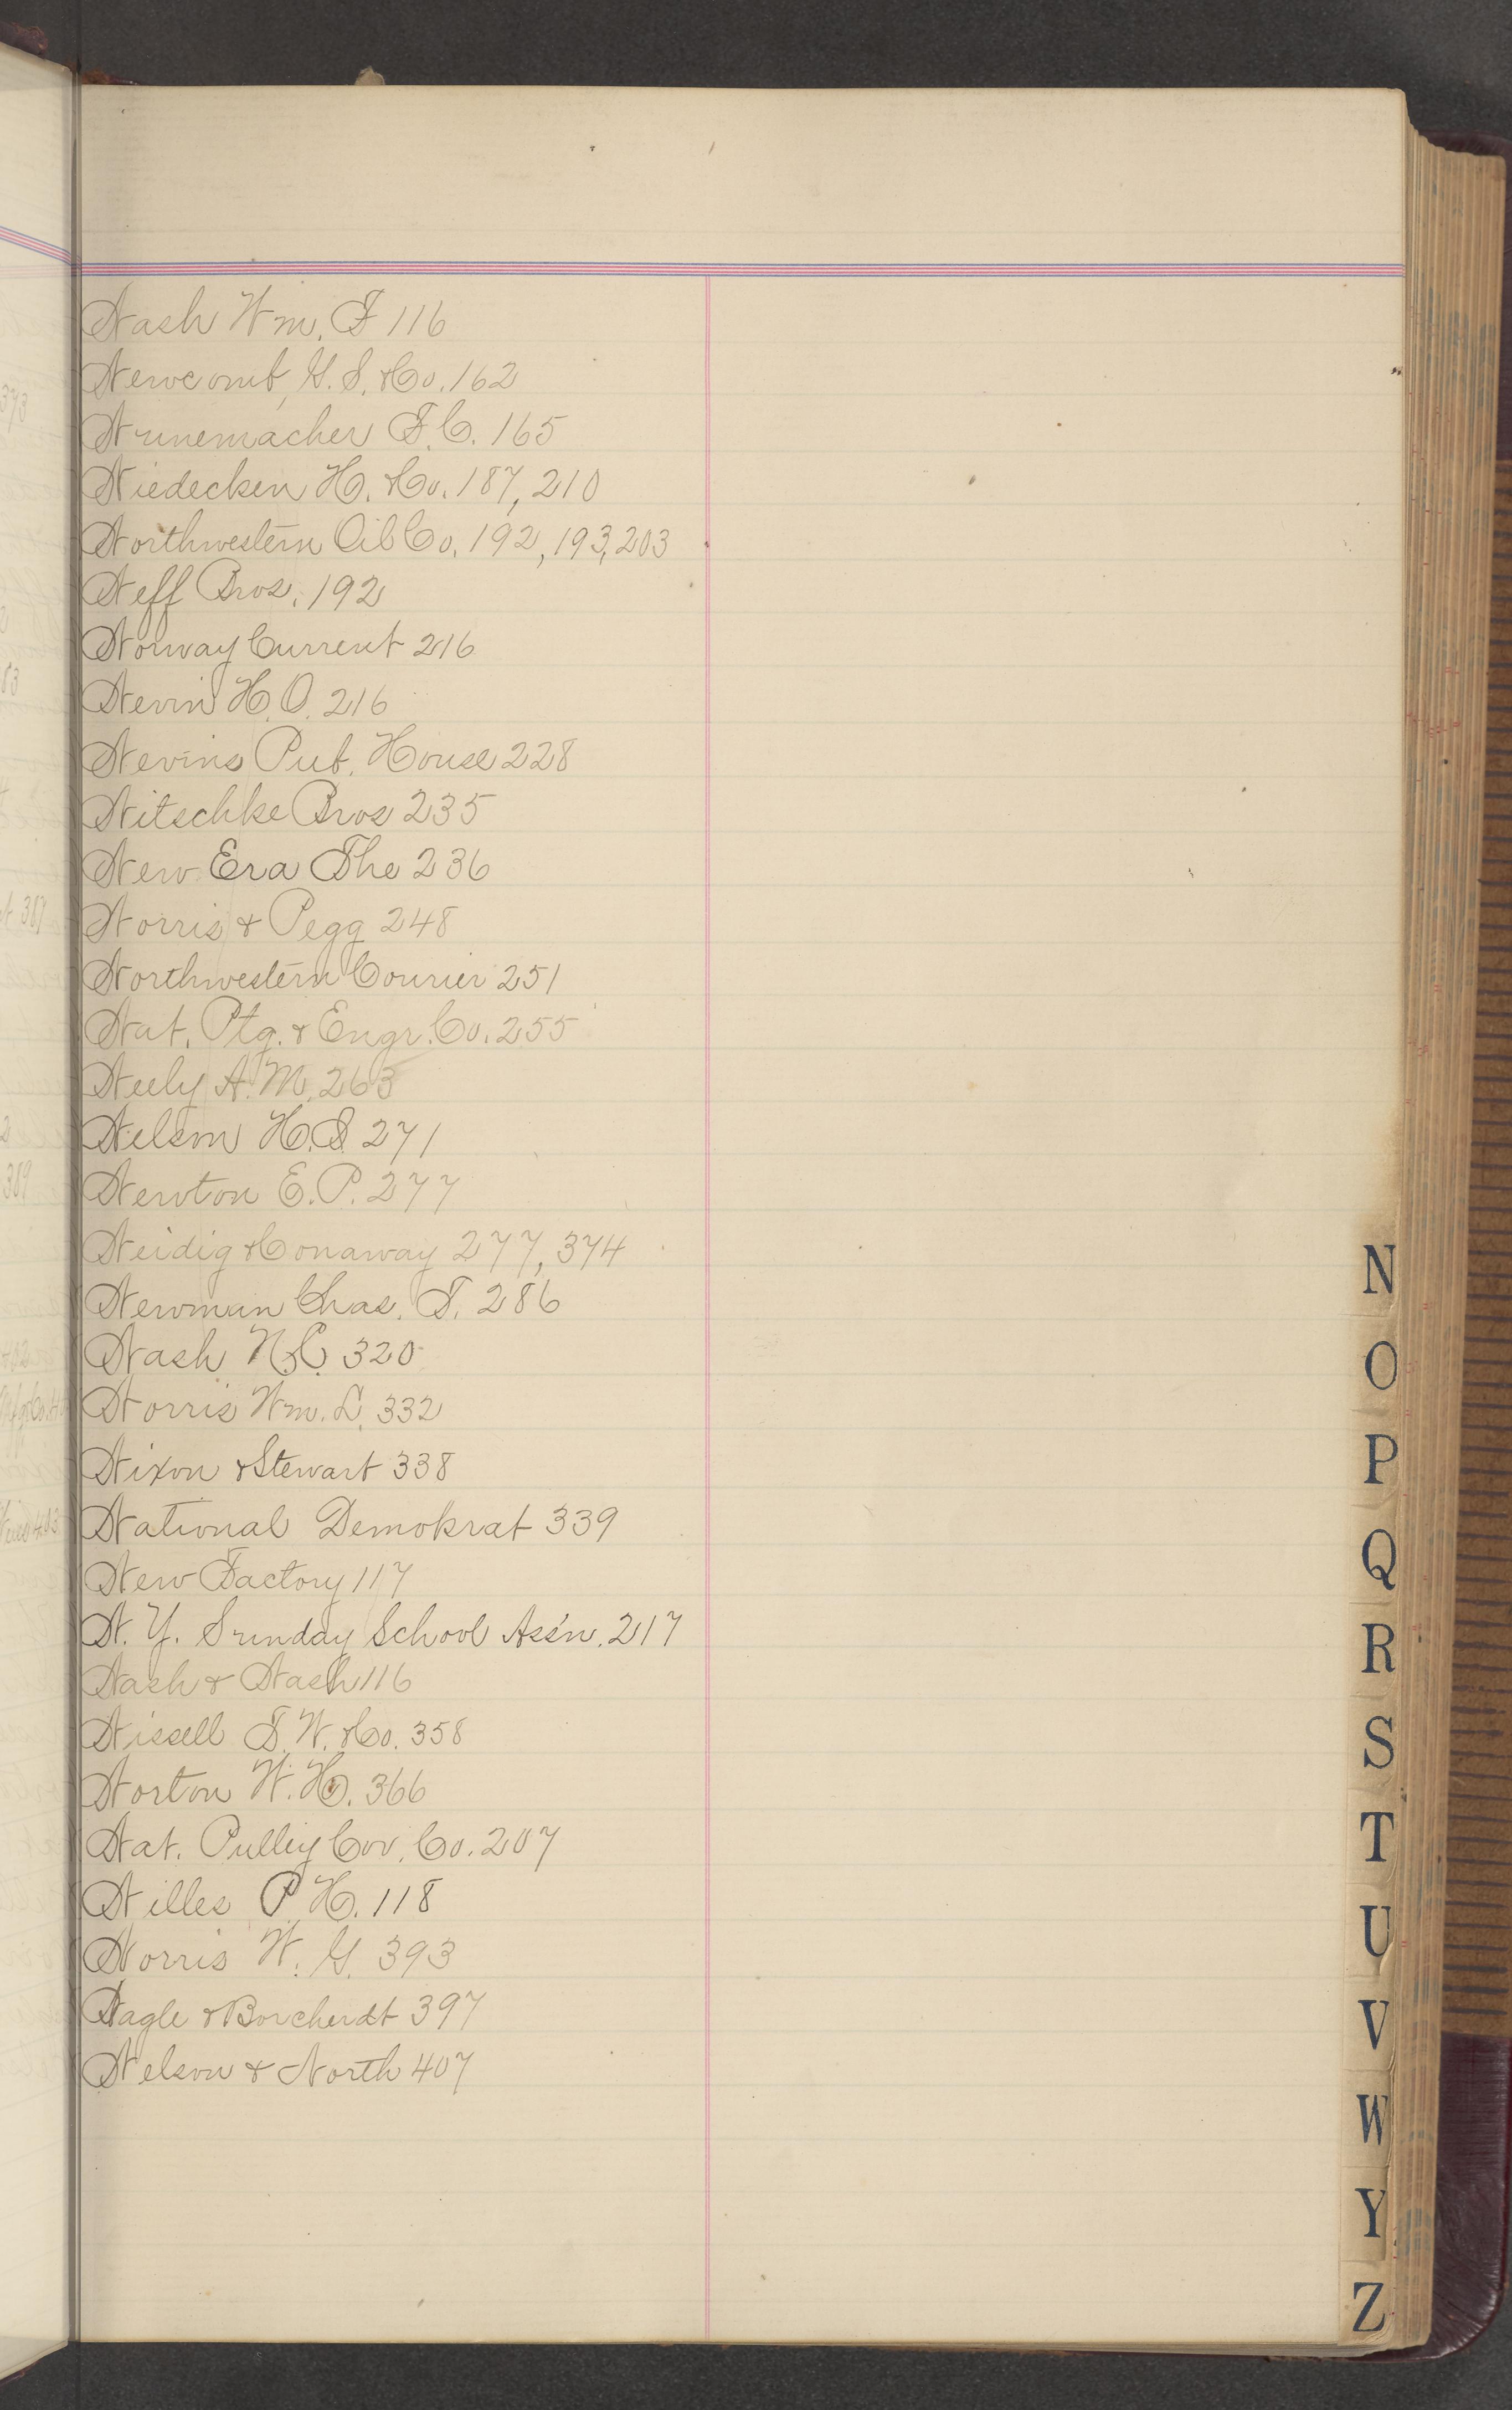 Nash Wm. F 116
Newcomb, G. S. & Co. 162
Nunemacher F. C. 165
Niedecken H. & Co. 187, 210
Northwestern Oil Co. 192, 193, 203
Neff Bros. 192
Norway Current 216
Nevin H. O. 216
Nevins Pub. House 228
Nitschke Bros 235
New Era The 236
Norris & Pegg 248
Northwestern Courier 251
Nat. Ptg. & Engr. Co. 255
Neely A. M. 263
Nelson H. S 271
Newton E. P. 277
Neidig & Conaway 277, 374
Newman Chas. T. 286
Nash N. C. 320
Norris Wm. L. 332
Nixon & Stewart 338
National Demokrat 339
New Factory 117
N. Y. Sunday School Ass'n. 217
Nash & Nash 116
Nissell T. W. & Co. 358
Norton W. H. 366
Nat. Pulley Cov. Co. 207
Nilles P H. 118
Norris W. G. 393
Nagle & Borcherdt 397
Nelson & North 407
N
O
P
Q
R
S
T
U
V
W
Y
Z